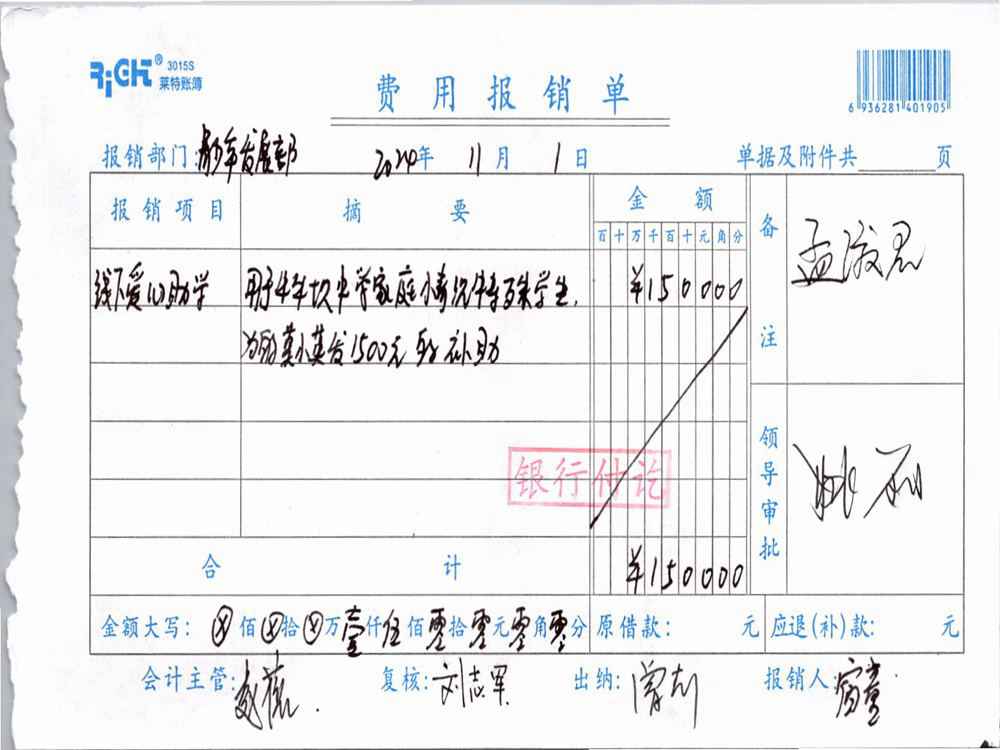 RiGHT® 3015S
莱特账簿
费用报销单
6 936281 401905
报销部门:青少年发展部 2024年 11月 1日 单据及附件共 页
报销项目 摘要 金额
百十万千百十元角分
线下爱心助学 用于牛车坝中学家庭情况特殊学生,
¥150000
发1500元 补助
银行付讫
合计 ¥150000
备注
领导审批
金额大写: ⊗佰⊗拾⊗万壹仟伍佰零拾零元零角零分 原借款: 元 应退(补)款: 元
会计主管: 复核:刘志军 出纳: 报销人